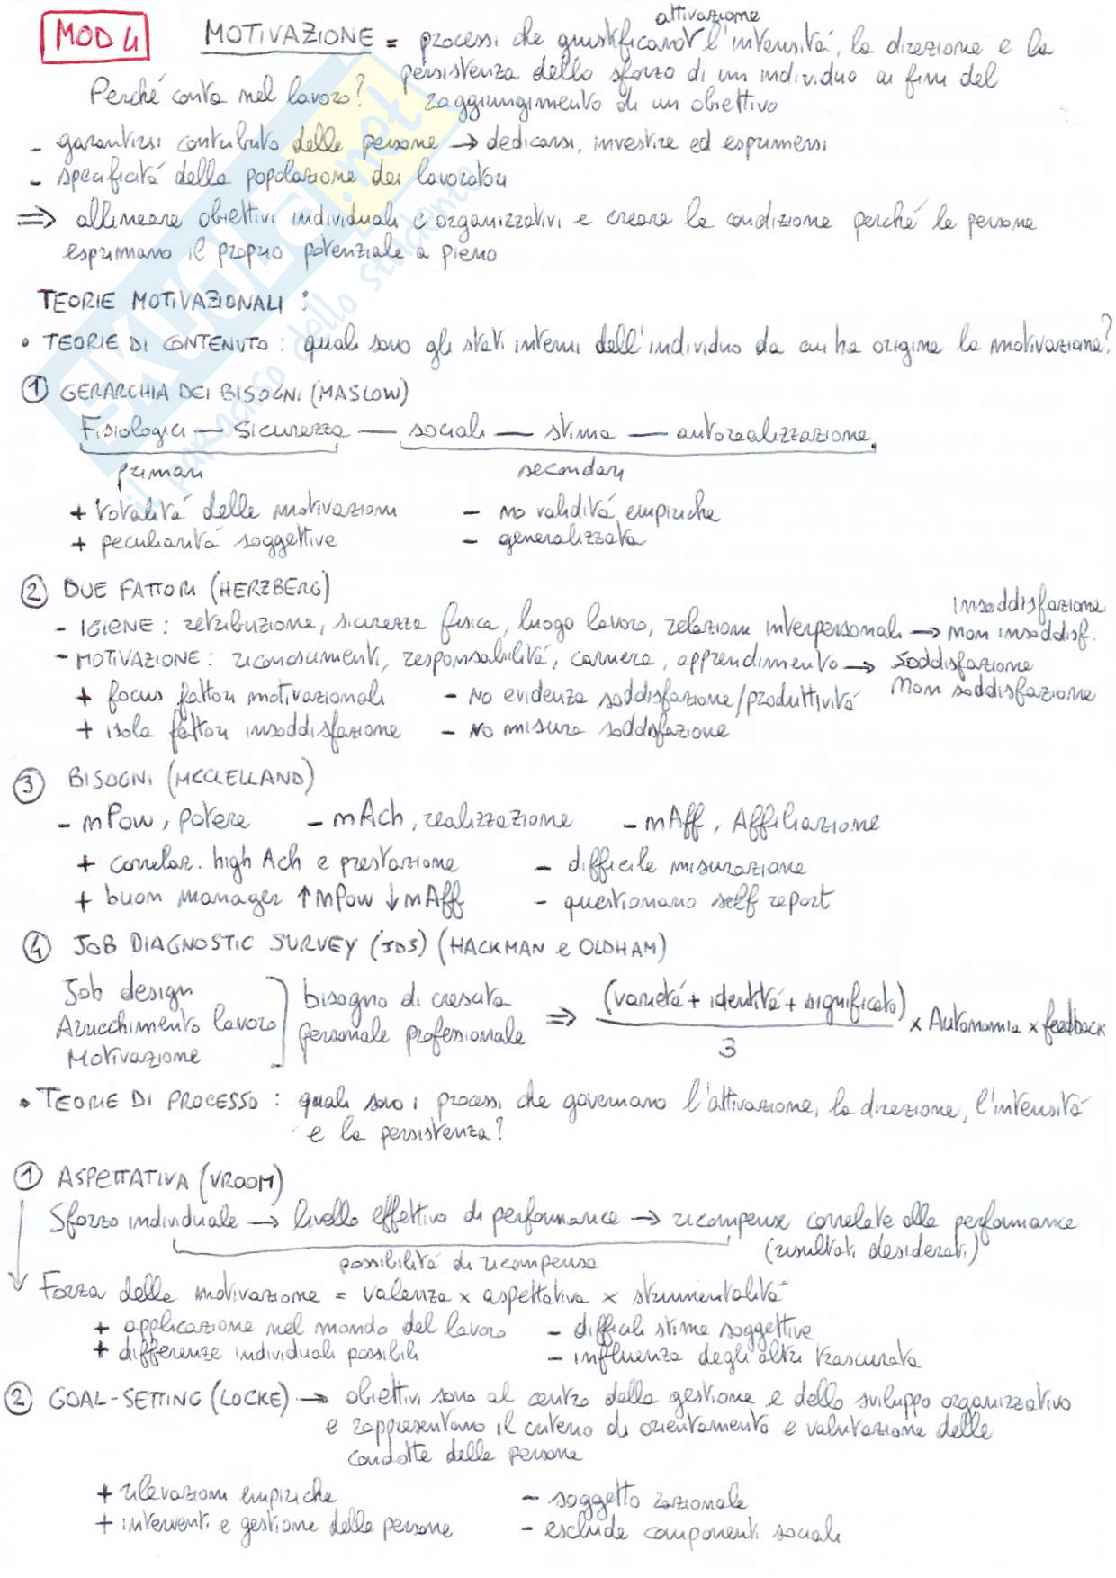 MOD 4
MOTIVAZIONE = processi che giustificano l'intensità, la direzione e la
attivazione
persistenza dello sforzo di un individuo ai fini del
Perché conta nel lavoro? raggiungimento di un obiettivo
- garantirsi contributo delle persone → dedicarsi, investire ed esprimersi
- specificità della popolazione dei lavoratori
⇒ allineare obiettivi individuali e organizzativi e creare le condizione perché le persone
esprimano il proprio potenziale a pieno
TEORIE MOTIVAZIONALI :
• TEORIE DI CONTENUTO : quali sono gli stati interni dell'individuo da cui ha origine la motivazione?
① GERARCHIA DEI BISOGNI (MASLOW)
Fisiologici — Sicurezza — sociali — stima — autorealizzazione.
primari secondari
+ totalità delle motivazioni - no validità empiriche
+ peculiarità soggettive - generalizzata
② DUE FATTORI (HERZBERG)
insoddisfazione
- IGIENE : retribuzione, sicurezza fisica, luogo lavoro, relazioni interpersonali → non insoddisf.
- MOTIVAZIONE : riconoscimenti, responsabilità, carriera, apprendimento → soddisfazione
+ focus fattori motivazionali - No evidenza soddisfazione/produttività Non soddisfazione
+ isola fattori insoddisfazione - No misura soddisfazione
③ BISOGNI (MCCLELLAND)
- nPow, potere - nAch, realizzazione - nAff, Affiliazione
+ correlaz. high Ach e prestazione - difficile misurazione
+ buon manager ↑nPow ↓nAff - questionario self report
④ JOB DIAGNOSTIC SURVEY (JDS) (HACKMAN e OLDHAM)
Job design
Arricchimento lavoro
Motivazione
bisogno di crescita
personale professionale ⇒ (varietà + identità + significato) / 3 × Autonomia × feedback
• TEORIE DI PROCESSO : quali sono i processi che governano l'attivazione, la direzione, l'intensità
e la persistenza?
① ASPETTATIVA (VROOM)
Sforzo individuale → livello effettivo di performance → ricompense correlate alle performance
possibilità di ricompensa (risultati desiderati)
Forza della motivazione = valenza × aspettativa × strumentalità
+ applicazione nel mondo del lavoro - difficili stime soggettive
+ differenze individuali possibili - influenza degli altri trascurata
② GOAL-SETTING (LOCKE) → obiettivi sono al centro della gestione e dello sviluppo organizzativo
e rappresentano il criterio di orientamento e valutazione delle
condotte delle persone
+ rilevazioni empiriche - soggetto razionale
+ interventi e gestione delle persone - esclude componenti sociali